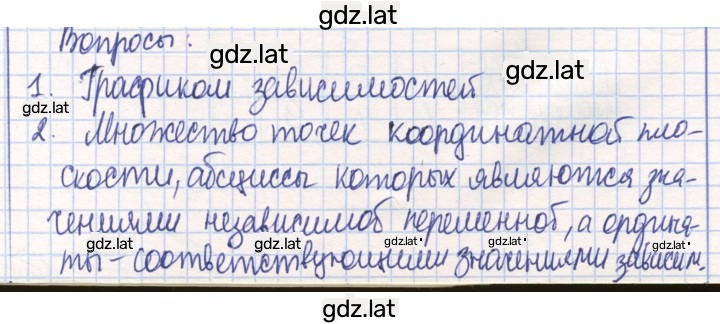 gdz.lat
Вопросы:
gdz.lat
1. Графиком зависимостей
gdz.lat
gdz.lat
2. Множество точек координатной пло-
скости, абсциссы которых являются зна-
чениями независимой переменной, а ордина-
gdz.lat gdz.lat gdz.lat gdz.lat
ты - соответствующими значениями зависим.
gdz.lat